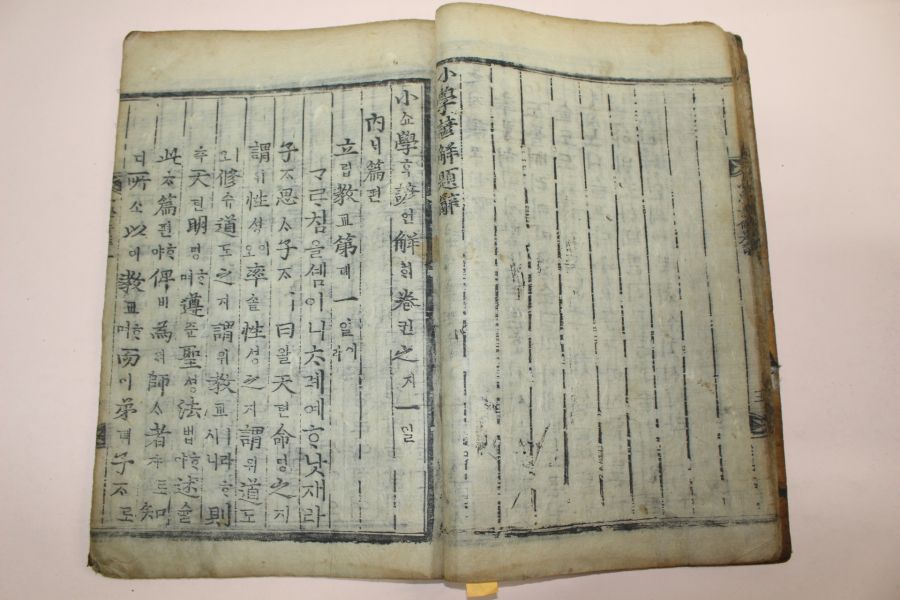 小學諺解題辭
小쇼學ᄒᆞᆨ諺언解ᄒᆡ卷권之지一일
內ᄂᆡ篇편
立립敎교第뎨一일
ᄀᆞᄅᆞ침을셰욤이니ᄎᆞ례예ᄒᆞ낫재라
子ᄌᆞ思ᄉᆞ子ᄌᆞㅣ曰왈天텬命명之지
謂위性셩이오率솔性셩之지謂위道도
ㅣ오修슈道도之지謂위敎교ㅣ라ᄒᆞ시니則
天텬明명ᄒᆞ며遵준聖셩法법ᄒᆞ야述슐
此ᄎᆞ篇편ᄒᆞ야俾비爲위師ᄉᆞ者쟈로知
所소以이敎교ᄒᆞ며而이弟뎨子ᄌᆞ로